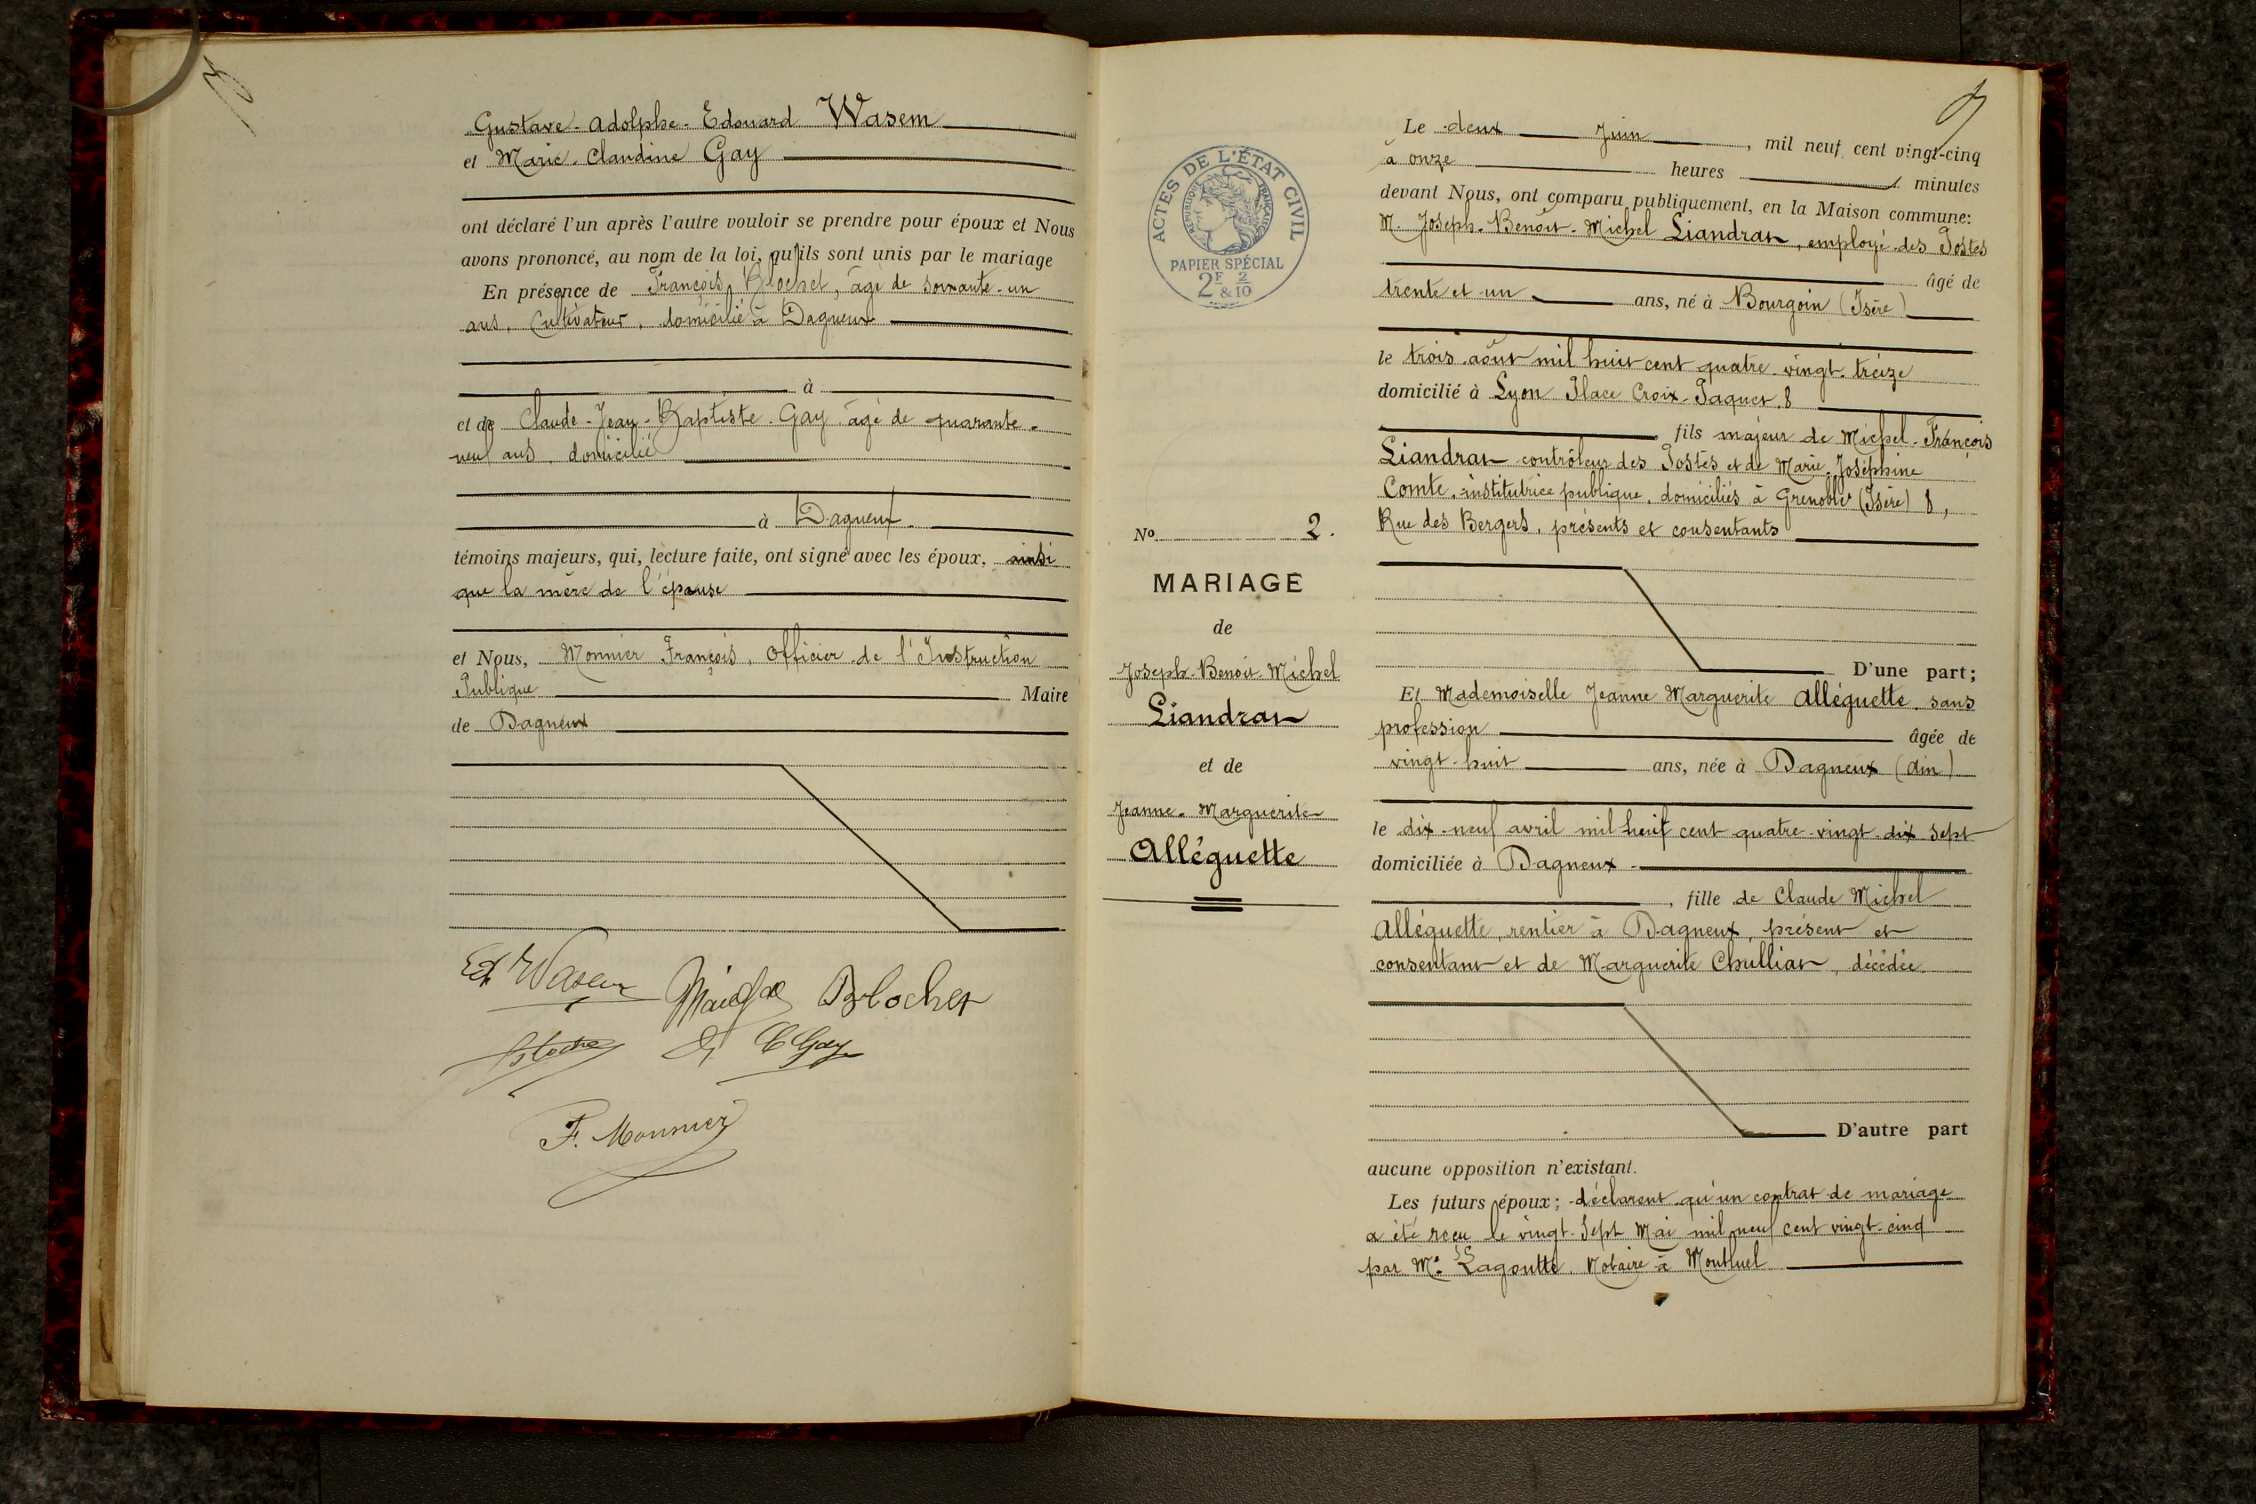 Gustave-Adolphe-Edouard Wasem
et Marie-Claudine Gay
ont déclaré l'un après l'autre vouloir se prendre pour époux et Nous
avons prononcé, au nom de la loi, qu'ils sont unis par le mariage
En présence de François Blochet, âgé de soixante-un
ans, Cultivateur, domicilié à Dagneux
à
et de Claude-Jean-Baptiste Gay âgé de quarante-
neuf ans, domicilié
à Dagneux
témoins majeurs, qui, lecture faite, ont signé avec les époux, ainsi
que la mère de l'épouse
et Nous, Monnier François, Officier de l'Instruction
Publique Maire
de Dagneux
Ed Wasem Blochet
C Gay
F. Monnier
ACTES DE L'ÉTAT CIVIL
RÉPUBLIQUE FRANÇAISE
PAPIER SPÉCIAL
2F & 2/10
No 2.
MARIAGE
de
Joseph-Benoit-Michel
Liandrat
et de
Jeanne-Marguerite
Alléguette
Le deux Juin, mil neuf cent vingt-cinq
à onze heures minutes
devant Nous, ont comparu publiquement, en la Maison commune:
M. Joseph-Benoit-Michel Liandrat, employé des Postes
âgé de
trente et un ans, né à Bourgoin (Isère)
le trois août mil huit cent quatre-vingt-treize
domicilié à Lyon Place Croix-Paquet, 8
fils majeur de Michel-François
Liandrat contrôleur des Postes et de Marie-Joséphine
Comte, institutrice publique, domiciliés à Grenoble (Isère) 8,
Rue des Bergers, présents et consentants
D'une part;
Et Mademoiselle Jeanne Marguerite Alléguette, sans
profession âgée de
vingt-huit ans, née à Dagneux (Ain)
le dix-neuf avril mil huit cent quatre-vingt-dix sept
domiciliée à Dagneux
, fille de Claude Michel
Alléguette, rentier à Dagneux, présent et
consentant et de Marguerite Chulliat, décédée.
D'autre part
aucune opposition n'existant.
Les futurs époux; déclarent qu'un contrat de mariage
a été reçu le vingt-sept Mai mil neuf cent vingt-cinq
par Me Lagoutte, Notaire à Montluel